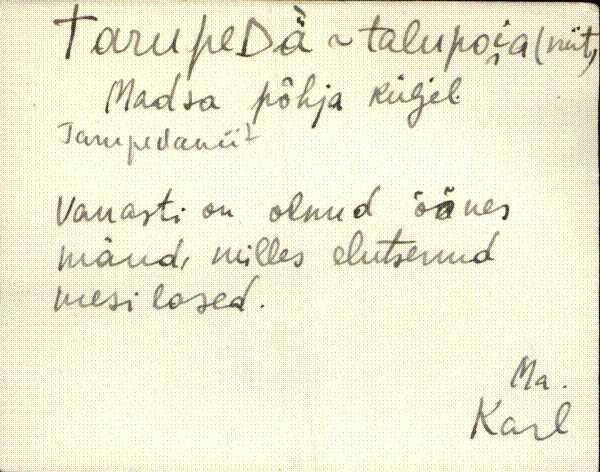 TarupeDä ~ talupoja (niit)
Madsa põhja küljel
Tarupedäniit
Vanasti on olnud õõnes
mänd, milles elutsenud
mesilased.
Ma.
Karl